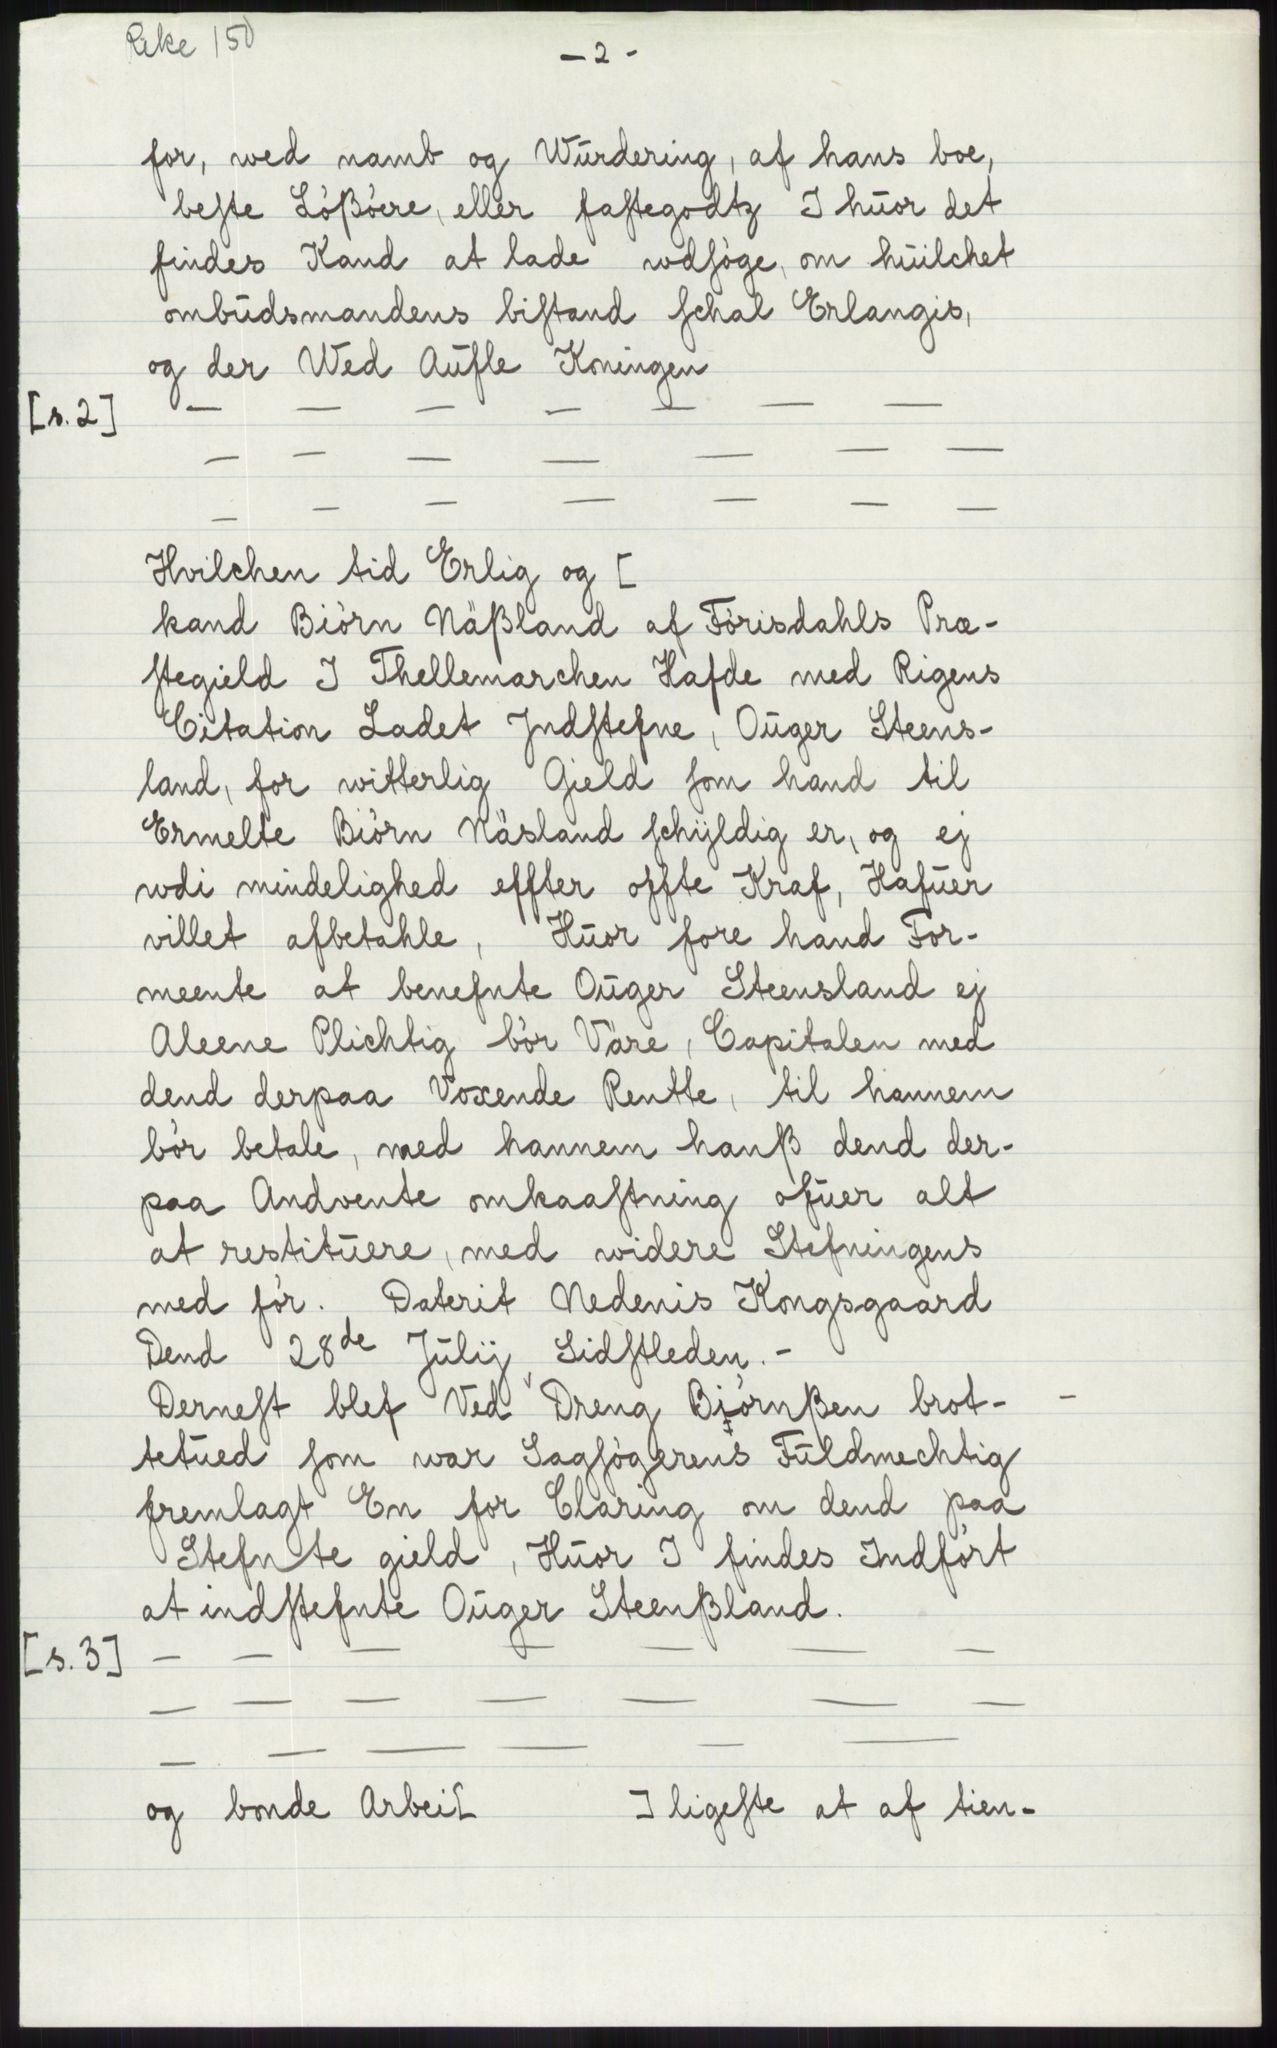 Rike 150
- 2 -
for, wed namb og Würdering, af hans boe,
beste Lößöere, eller fastegodtz I hüor det
findes Kand at lade wdsöge, om hüilchet
ombüdsmandens bistand schal Erlangis,
og der Wed Aüfle Koningen
[s. 2] — — — — — — —
— — — — — — —
— — — — — — —
Hvilchen tid Erlig og [
kand Biörn Näßland af Förisdahls Præ-
stegield I Thellemarchen Hafde med Rigens
Citation Ladet Jndstefne, Oüger Steens-
land, for witterlig Gield som hand til
Ermelte Biörn Näsland schÿldig er, og ej
wdi mindelighed effter offte Kraf, Hafüer
villet afbetahle, Hüor fore hand For-
meente at benefnte Oüger Steensland ej
Aleene Plichtig bör Väre, Capitalen med
dend derpaa Voxende Rentte, til hannem
bör betale, med hannem hanß dend der-
paa Andvente omkaastning ofüer alt
at restitüere, med widere Stefningens
med för. Daterit Nedenis Kongsgaard
Dend 28de Jülij Sidstleden. -
Dernest blef Ved Dreng Biörnßen brot- -
tetüed som war Sagsögerens Füldmechtig
fremlagt En for Claring om dend paa
Stefnte gield, Hüor I findes Indfört
at indstefnte Oüger Steenßland.
[s. 3] — — — — — — —
— — — — — — —
— — — — — —
og bonde Arbei[ ] ligeste at af tien-